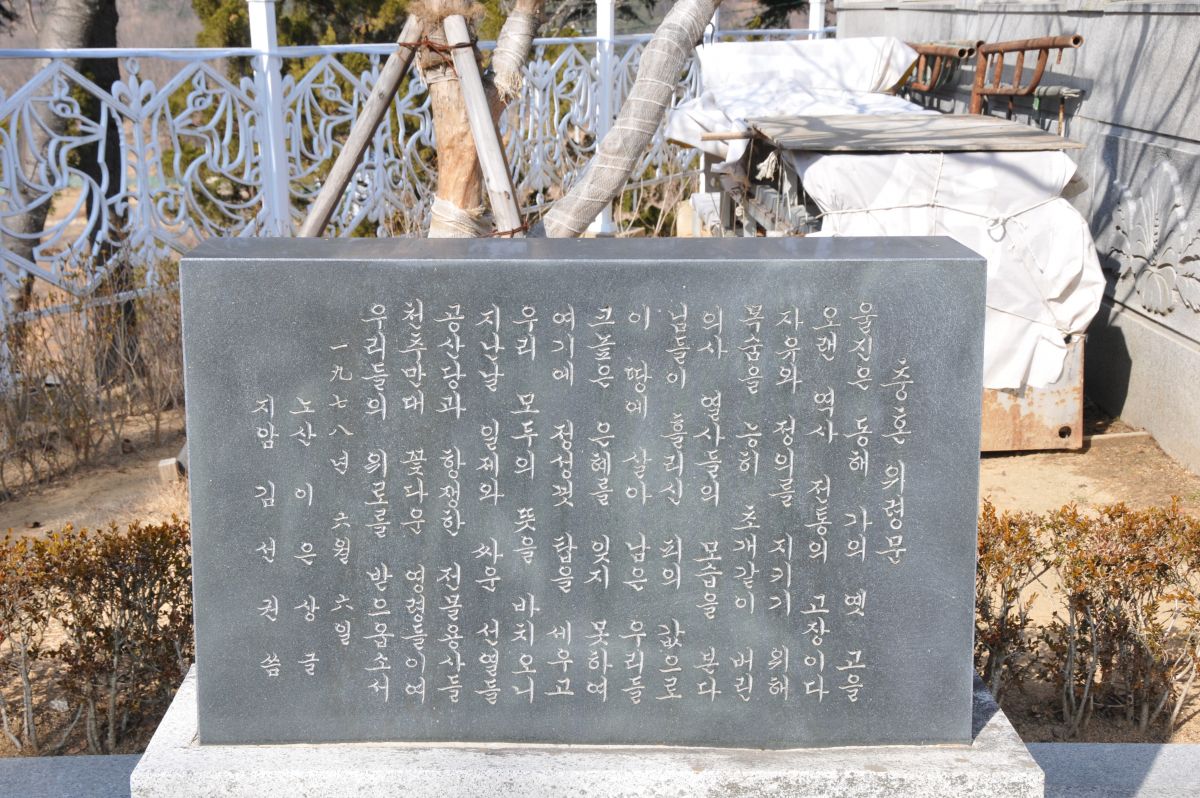 충혼 위령문
울진은 동해 가의 옛 고을
오랜 역사 전통의 고장이다
자유와 정의를 지키기 위해
목숨을 능히 초개같이 버린
의사 열사들의 모습을 본다
님들이 흘리신 피의 값으로
이 땅에 살아 남은 우리들
크높은 은혜를 잊지 못하여
여기에 정성껏 탑을 세우고
우리 모두의 뜻을 바치오니
지난날 일제와 싸운 선열들
공산당과 항쟁한 전몰용사들
천추만대 꽃다운 영령들이여
우리들의 위로를 받으옵소서
一九七八년 六월 六일
노산 이은상 글
지암 김선권 씀